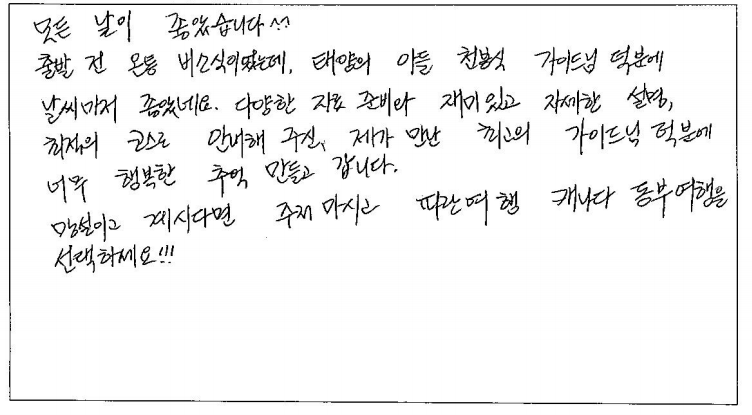 모든 날이 좋았습니다^^
출발 전 온통 비소식이었는데, 태양의 아들 천봉식 가이드님 덕분에
날씨마저 좋았네요. 다양한 자료 준비와 재미있고 자세한 설명,
최적의 코스로 안내해 주신, 제가 만난 최고의 가이드님 덕분에
너무 행복한 추억 만들고 갑니다.
망설이고 계시다면 주저 마시고 파란여행 캐나다 동부여행을
선택하세요!!!